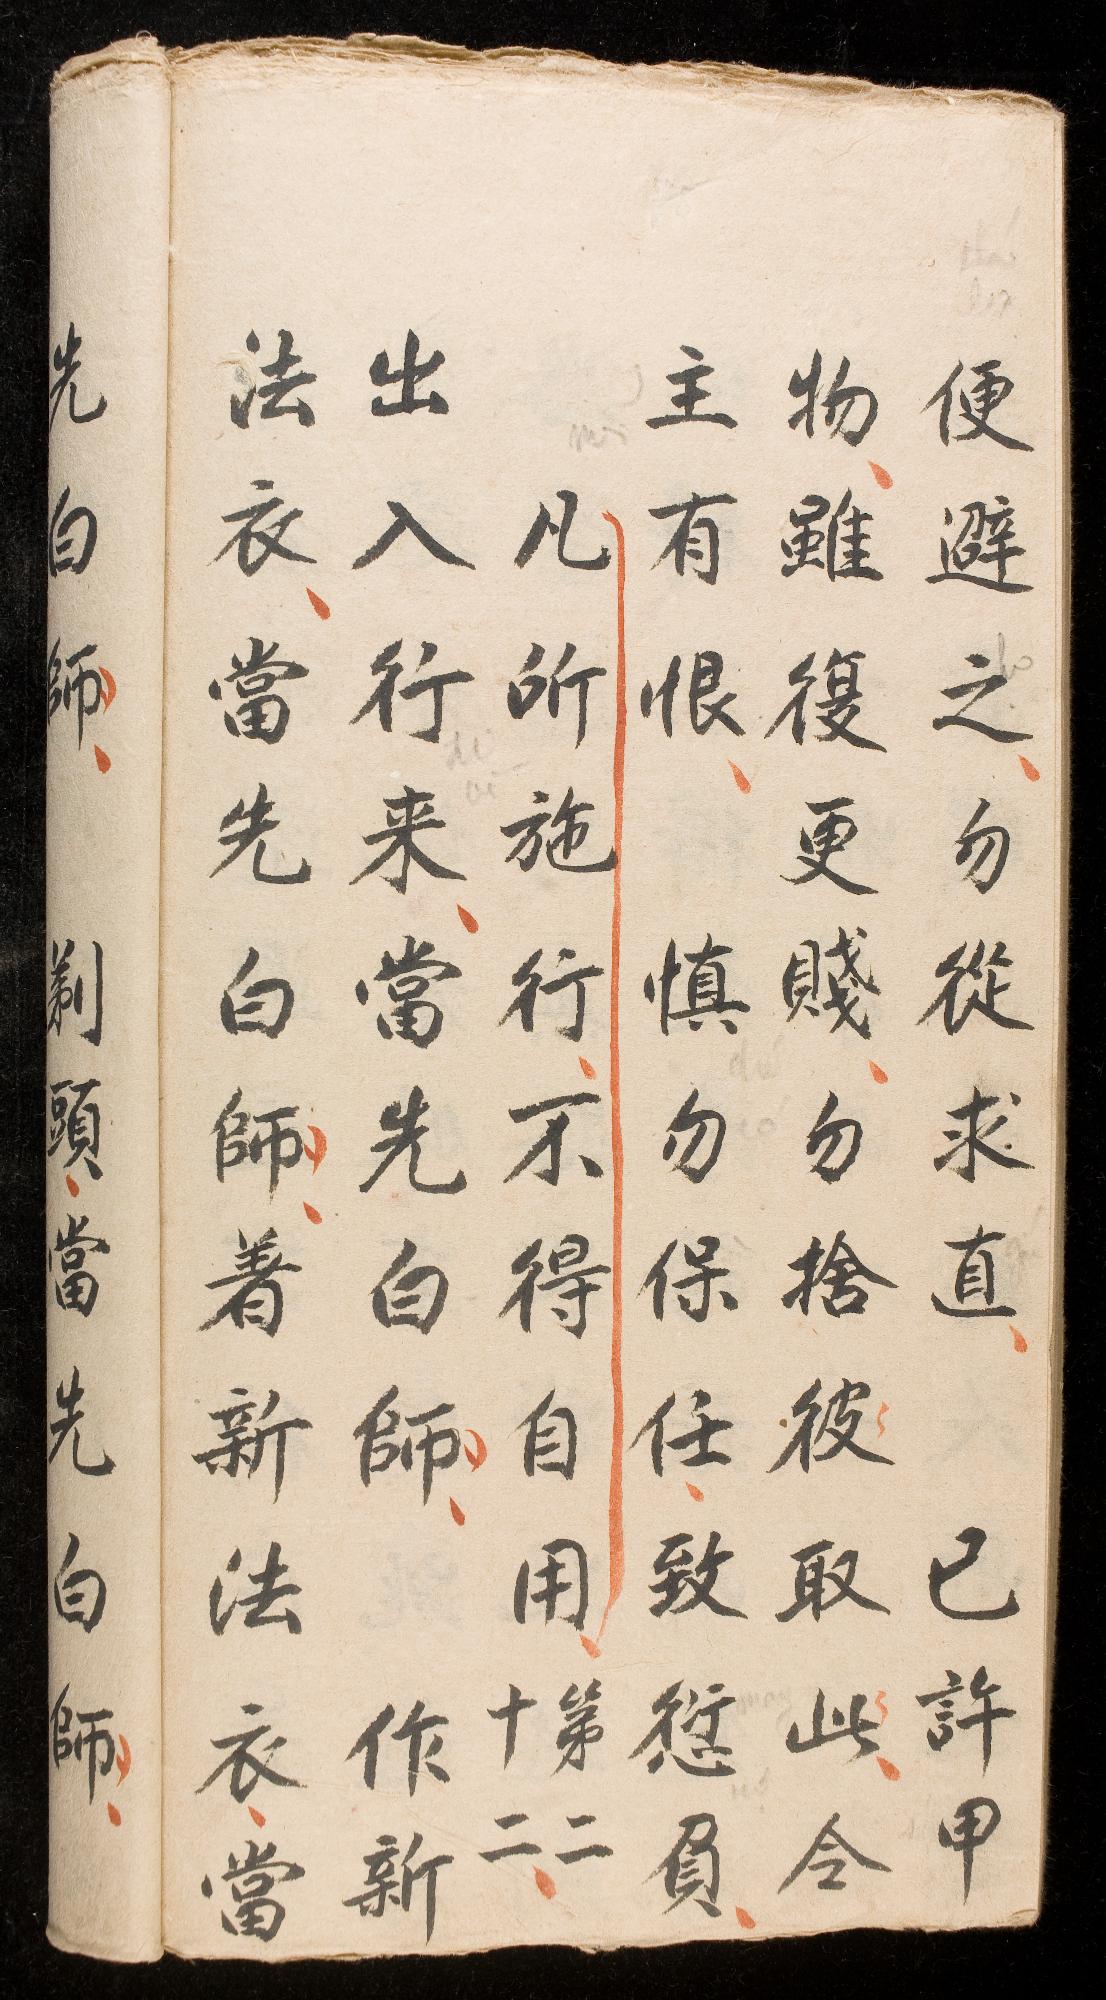 便避之勿從求直已許甲
物雖復更賤勿捨彼取此令
主有恨慎勿保任致愆負
凡所施行不得自用第二十二
出入行来當先白師作新
法衣當先白師著新法衣當
先白師剃頭當先白師